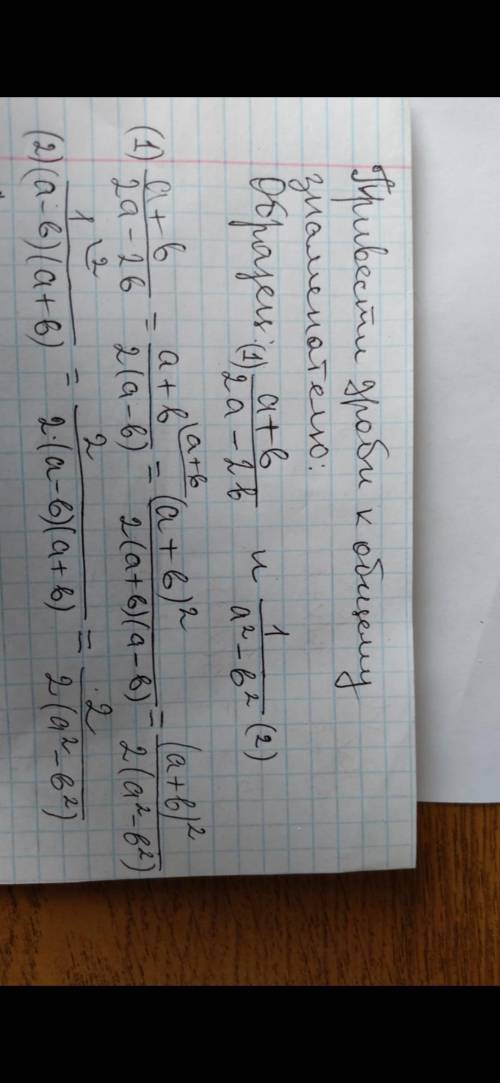 Привести дроби к общему
знаменателю:
Образец: (1) \frac{a+b}{2a-2b} и \frac{1}{a^2-b^2} (2)
(1) \frac{a+b}{2a-2b} = \frac{a+b^{\a+b}}{2(a-b)} = \frac{(a+b)^2}{2(a+b)(a-b)} = \frac{(a+b)^2}{2(a^2-b^2)}
(2) \frac{1^{\2}}{(a-b)(a+b)} = \frac{2}{2·(a-b)(a+b)} = \frac{2}{2(a^2-b^2)}